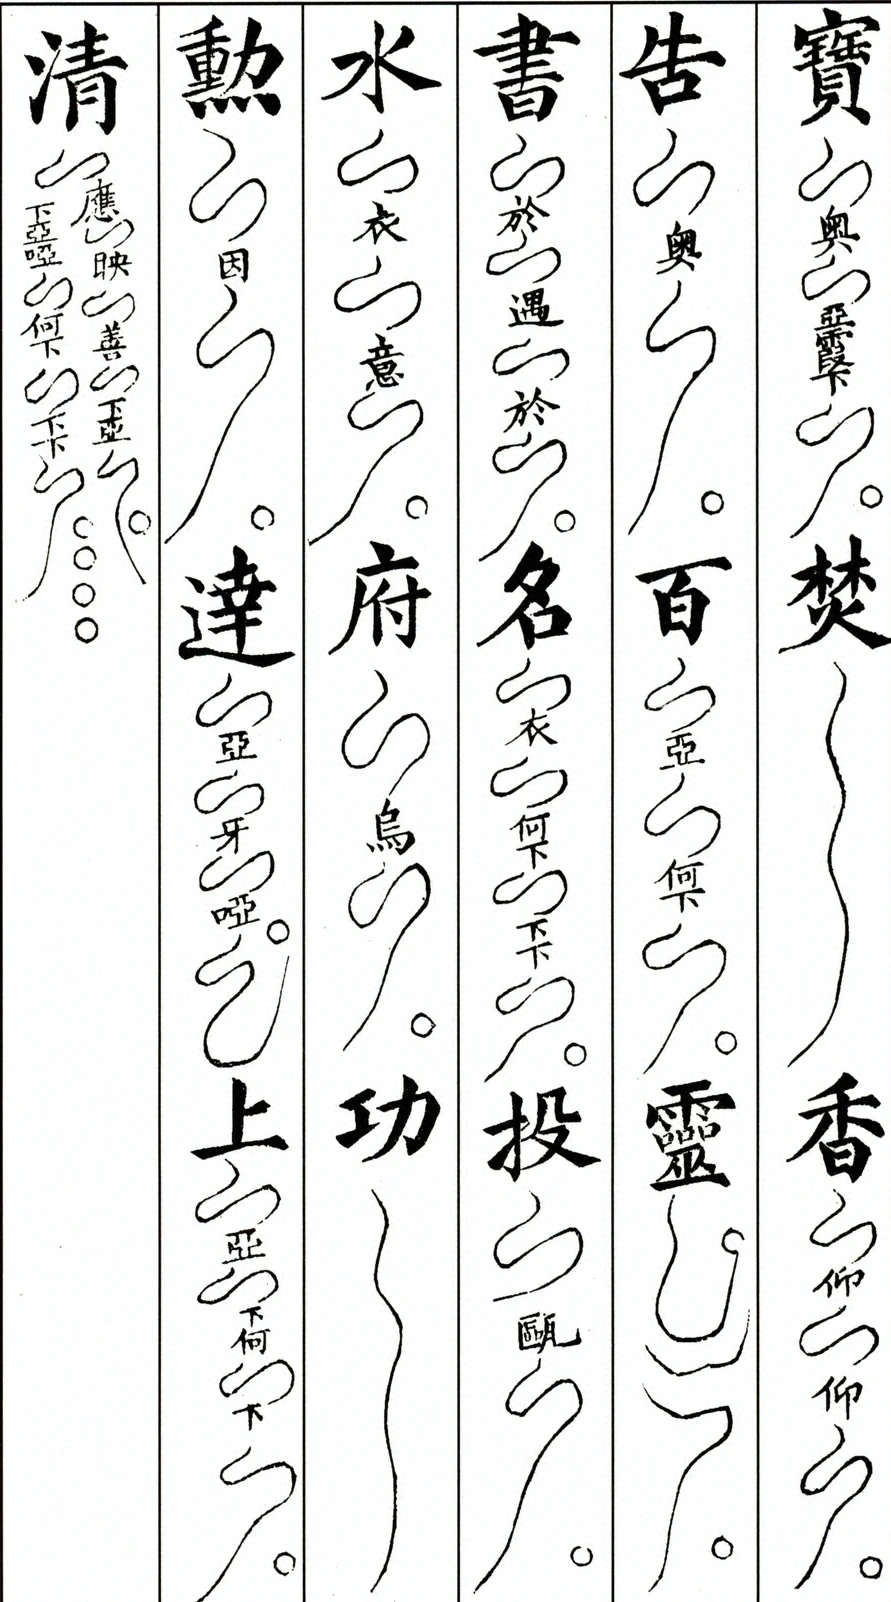 寶奥亞霞下焚香仰仰
告奥百亞何下靈
書於遇於名衣何下下下投甌
水衣意府烏功
勲因達亞牙啞上亞下何下
清應映善下亞下亞啞何下下下